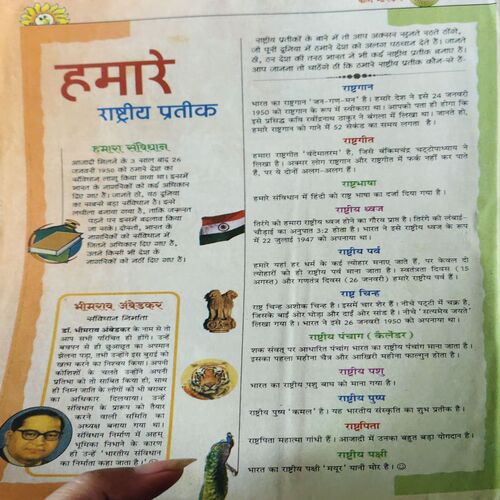 हमारे
राष्ट्रीय प्रतीक
हमारा संविधान
आजादी मिलने के 3 साल बाद 26
जनवरी 1950 को हमारे देश का
संविधान लागू किया गया था। इसमें
भारत के नागरिकों को कई अधिकार
दिए गए हैं। जानते हो, यह दुनिया
का सबसे बड़ा संविधान है। इसे
लचीला बनाया गया है, ताकि जरूरत
पड़ने पर इसमें बदलाव किया
जा सके। दोस्तो, भारत के
नागरिकों को संविधान में
जितने अधिकार दिए गए हैं,
उतने किसी भी देश के
नागरिकों को नहीं दिए गए हैं।
भीमराव अंबेडकर
संविधान निर्माता
डॉ. भीमराव अंबेडकर के नाम से तो
आप सभी परिचित ही होंगे। उन्हें
बचपन से ही छुआछूत का अपमान
झेलना पड़ा, तभी उन्होंने इस बुराई को
खत्म करने का निश्चय किया। अपनी
कोशिशों के चलते उन्होंने अपनी
प्रतिभा को तो साबित किया ही, साथ
ही निम्न जाति के लोगों को भी बराबर
का अधिकार दिलवाया। उन्हें
संविधान के प्रारूप को तैयार
करने वाली समिति का
अध्यक्ष बनाया गया था।
संविधान निर्माण में अहम्
भूमिका निभाने के कारण
ही उन्हें 'भारतीय संविधान
का निर्माता कहा जाता है।'
राष्ट्रीय प्रतीकों के बारे में तो आप अक्सर सुनते रहते होंगे,
जो पूरी दुनिया में हमारे देश को अलग पहचान देते हैं। जानते
हो, हर देश की तरह भारत ने भी कई राष्ट्रीय प्रतीक बनाए हैं।
आप जानना तो चाहेंगे ही कि हमारे राष्ट्रीय प्रतीक कौन-से हैं-
राष्ट्रगान
भारत का राष्ट्रगान 'जन-गण-मन' है। हमारे देश ने इसे 24 जनवरी
1950 को राष्ट्रगान के रूप में स्वीकारा था। आपको पता ही होगा कि
इसे प्रसिद्ध कवि रवींद्रनाथ ठाकुर ने बंगला में लिखा था। जानते हो,
हमारे राष्ट्रगान को गाने में 52 सेकंड का समय लगता है।
राष्ट्रगीत
हमारा राष्ट्रगीत 'वंदेमातरम' है, जिसे बंकिमचंद्र चट्टोपाध्याय ने
लिखा है। अक्सर लोग राष्ट्रगान और राष्ट्रगीत में फर्क नहीं कर पाते
हैं, पर ये दोनों अलग-अलग हैं।
राष्ट्रभाषा
हमारे संविधान में हिंदी को राष्ट्र भाषा का दर्जा दिया गया है।
राष्ट्रीय ध्वज
तिरंगे को हमारा राष्ट्रीय ध्वज होने का गौरव प्राप्त है। तिरंगे की लंबाई-
चौड़ाई का अनुपात 3:2 होता है। भारत ने इसे राष्ट्रीय ध्वज के रूप
में 22 जुलाई 1947 को अपनाया था।
राष्ट्रीय पर्व
हमारे यहां हर धर्म के कई त्योहार मनाए जाते हैं, पर केवल दो
त्योहारों को ही राष्ट्रीय पर्व माना जाता है। स्वतंत्रता दिवस (15
अगस्त) और गणतंत्र दिवस (26 जनवरी) हमारे राष्ट्रीय पर्व हैं।
राष्ट्र चिन्ह
राष्ट्र चिन्ह अशोक चिन्ह है। इसमें चार शेर हैं। नीचे पट्टी में चक्र है,
जिसके बाईं ओर घोड़ा और दाईं ओर सांड है। नीचे 'सत्यमेव जयते'
लिखा गया है। भारत ने इसे 26 जनवरी 1950 को अपनाया था।
राष्ट्रीय पंचाग (कैलेंडर)
शक संवत् पर आधारित पंचांग भारत का राष्ट्रीय पंचांग माना जाता है।
इसका पहला महीना चैत्र और आखिरी महीना फाल्गुन होता है।
राष्ट्रीय पशु
भारत का राष्ट्रीय पशु बाघ को माना गया है।
राष्ट्रीय पुष्प
राष्ट्रीय पुष्प 'कमल' है। यह भारतीय संस्कृति का शुभ प्रतीक है।
राष्ट्रपिता
राष्ट्रपिता महात्मा गांधी हैं। आजादी में उनका बहुत बड़ा योगदान है।
राष्ट्रीय पक्षी
भारत का राष्ट्रीय पक्षी 'मयूर' यानी मोर है।